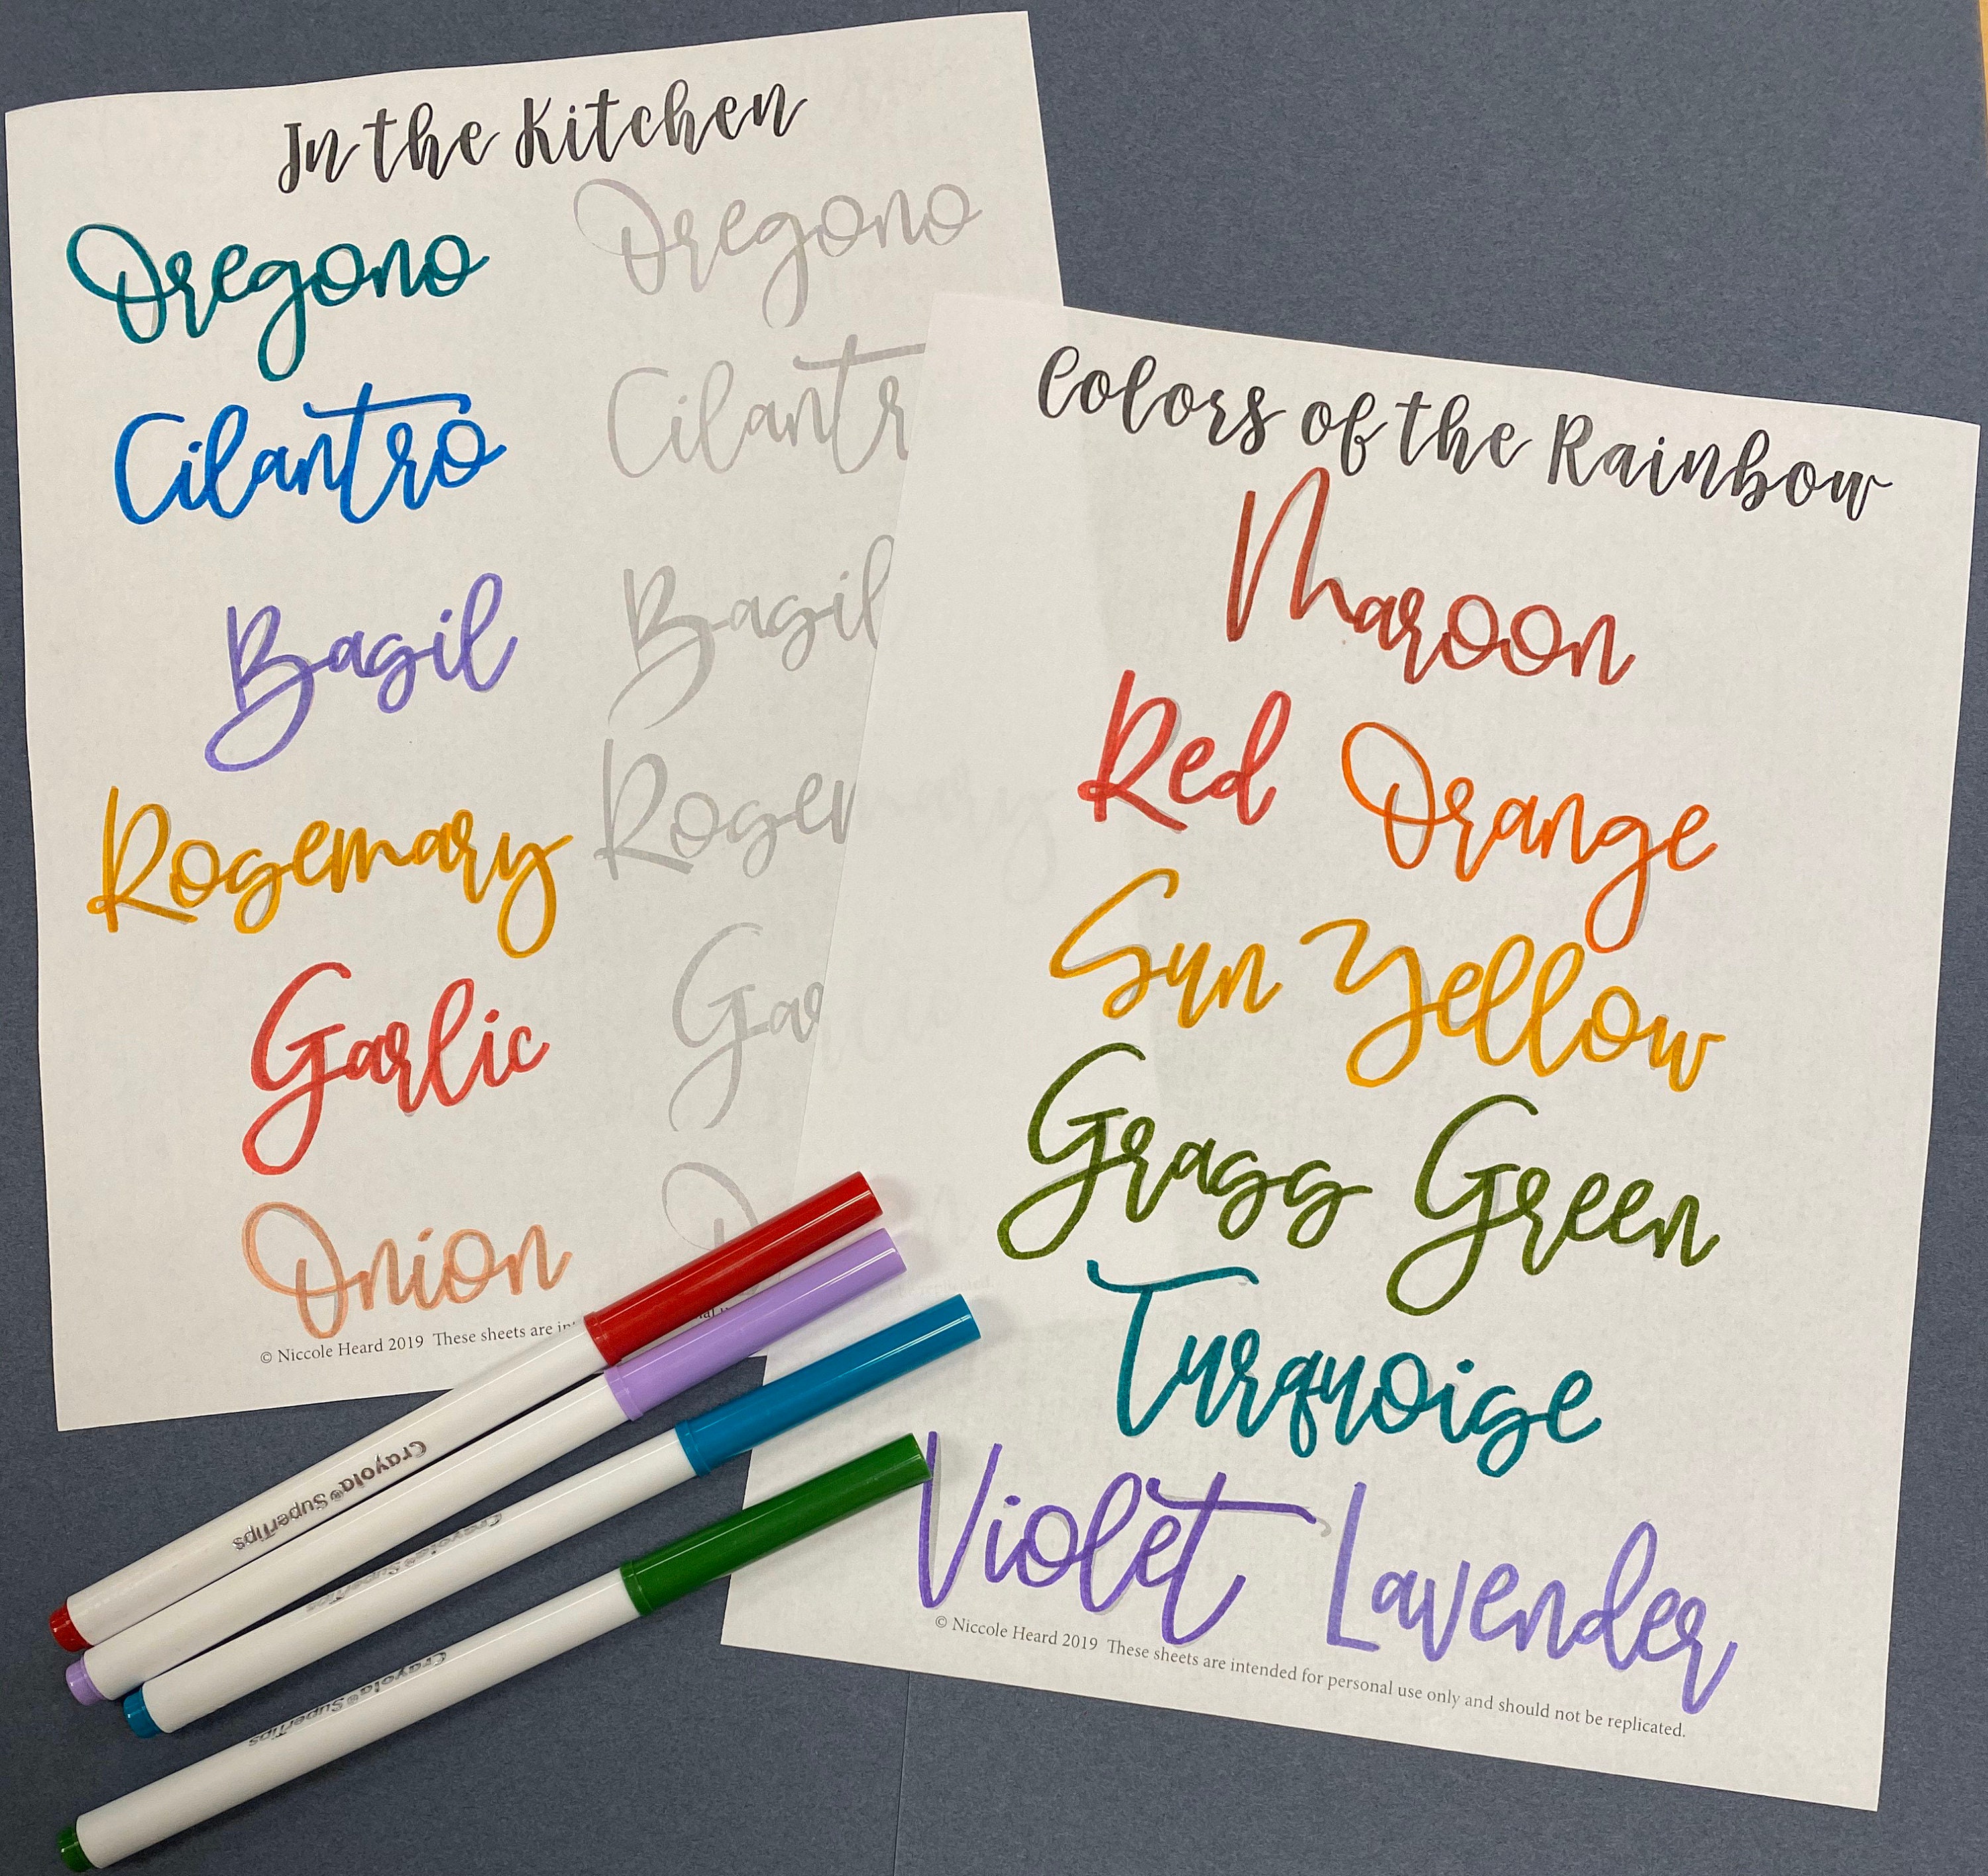 In the Kitchen
Oregono Oregono
Cilantro Cilantr
Basil Basil
Rosemary Rosem
Garlic Gar
Onion O
© Niccole Heard 2019 These sheets are int
Colors of the Rainbow
Maroon
Red Orange
Sun Yellow
Grass Green
Turquoise
Violet Lavender
© Niccole Heard 2019 These sheets are intended for personal use only and should not be replicated.
Crayola® SuperTips
Crayola® SuperTips
Crayola® SuperTips